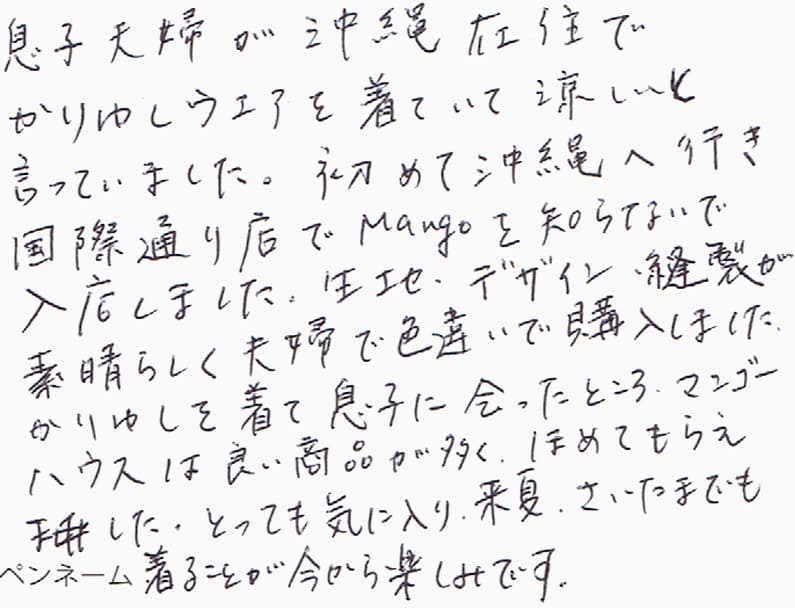 息子夫婦が沖縄在住で
かりゆしウエアを着ていて涼しいと
言っていました。初めて沖縄へ行き
国際通り店でMangoを知らないで
入店しました。生地、デザイン、縫製が
素晴らしく夫婦で色違いで購入しました。
かりゆしを着て息子に会ったところ、マンゴー
ハウスは良い商品が多く、ほめてもらえ
ました。とっても気に入り、来夏、さいたまでも
ペンネーム 着ることが今から楽しみです。